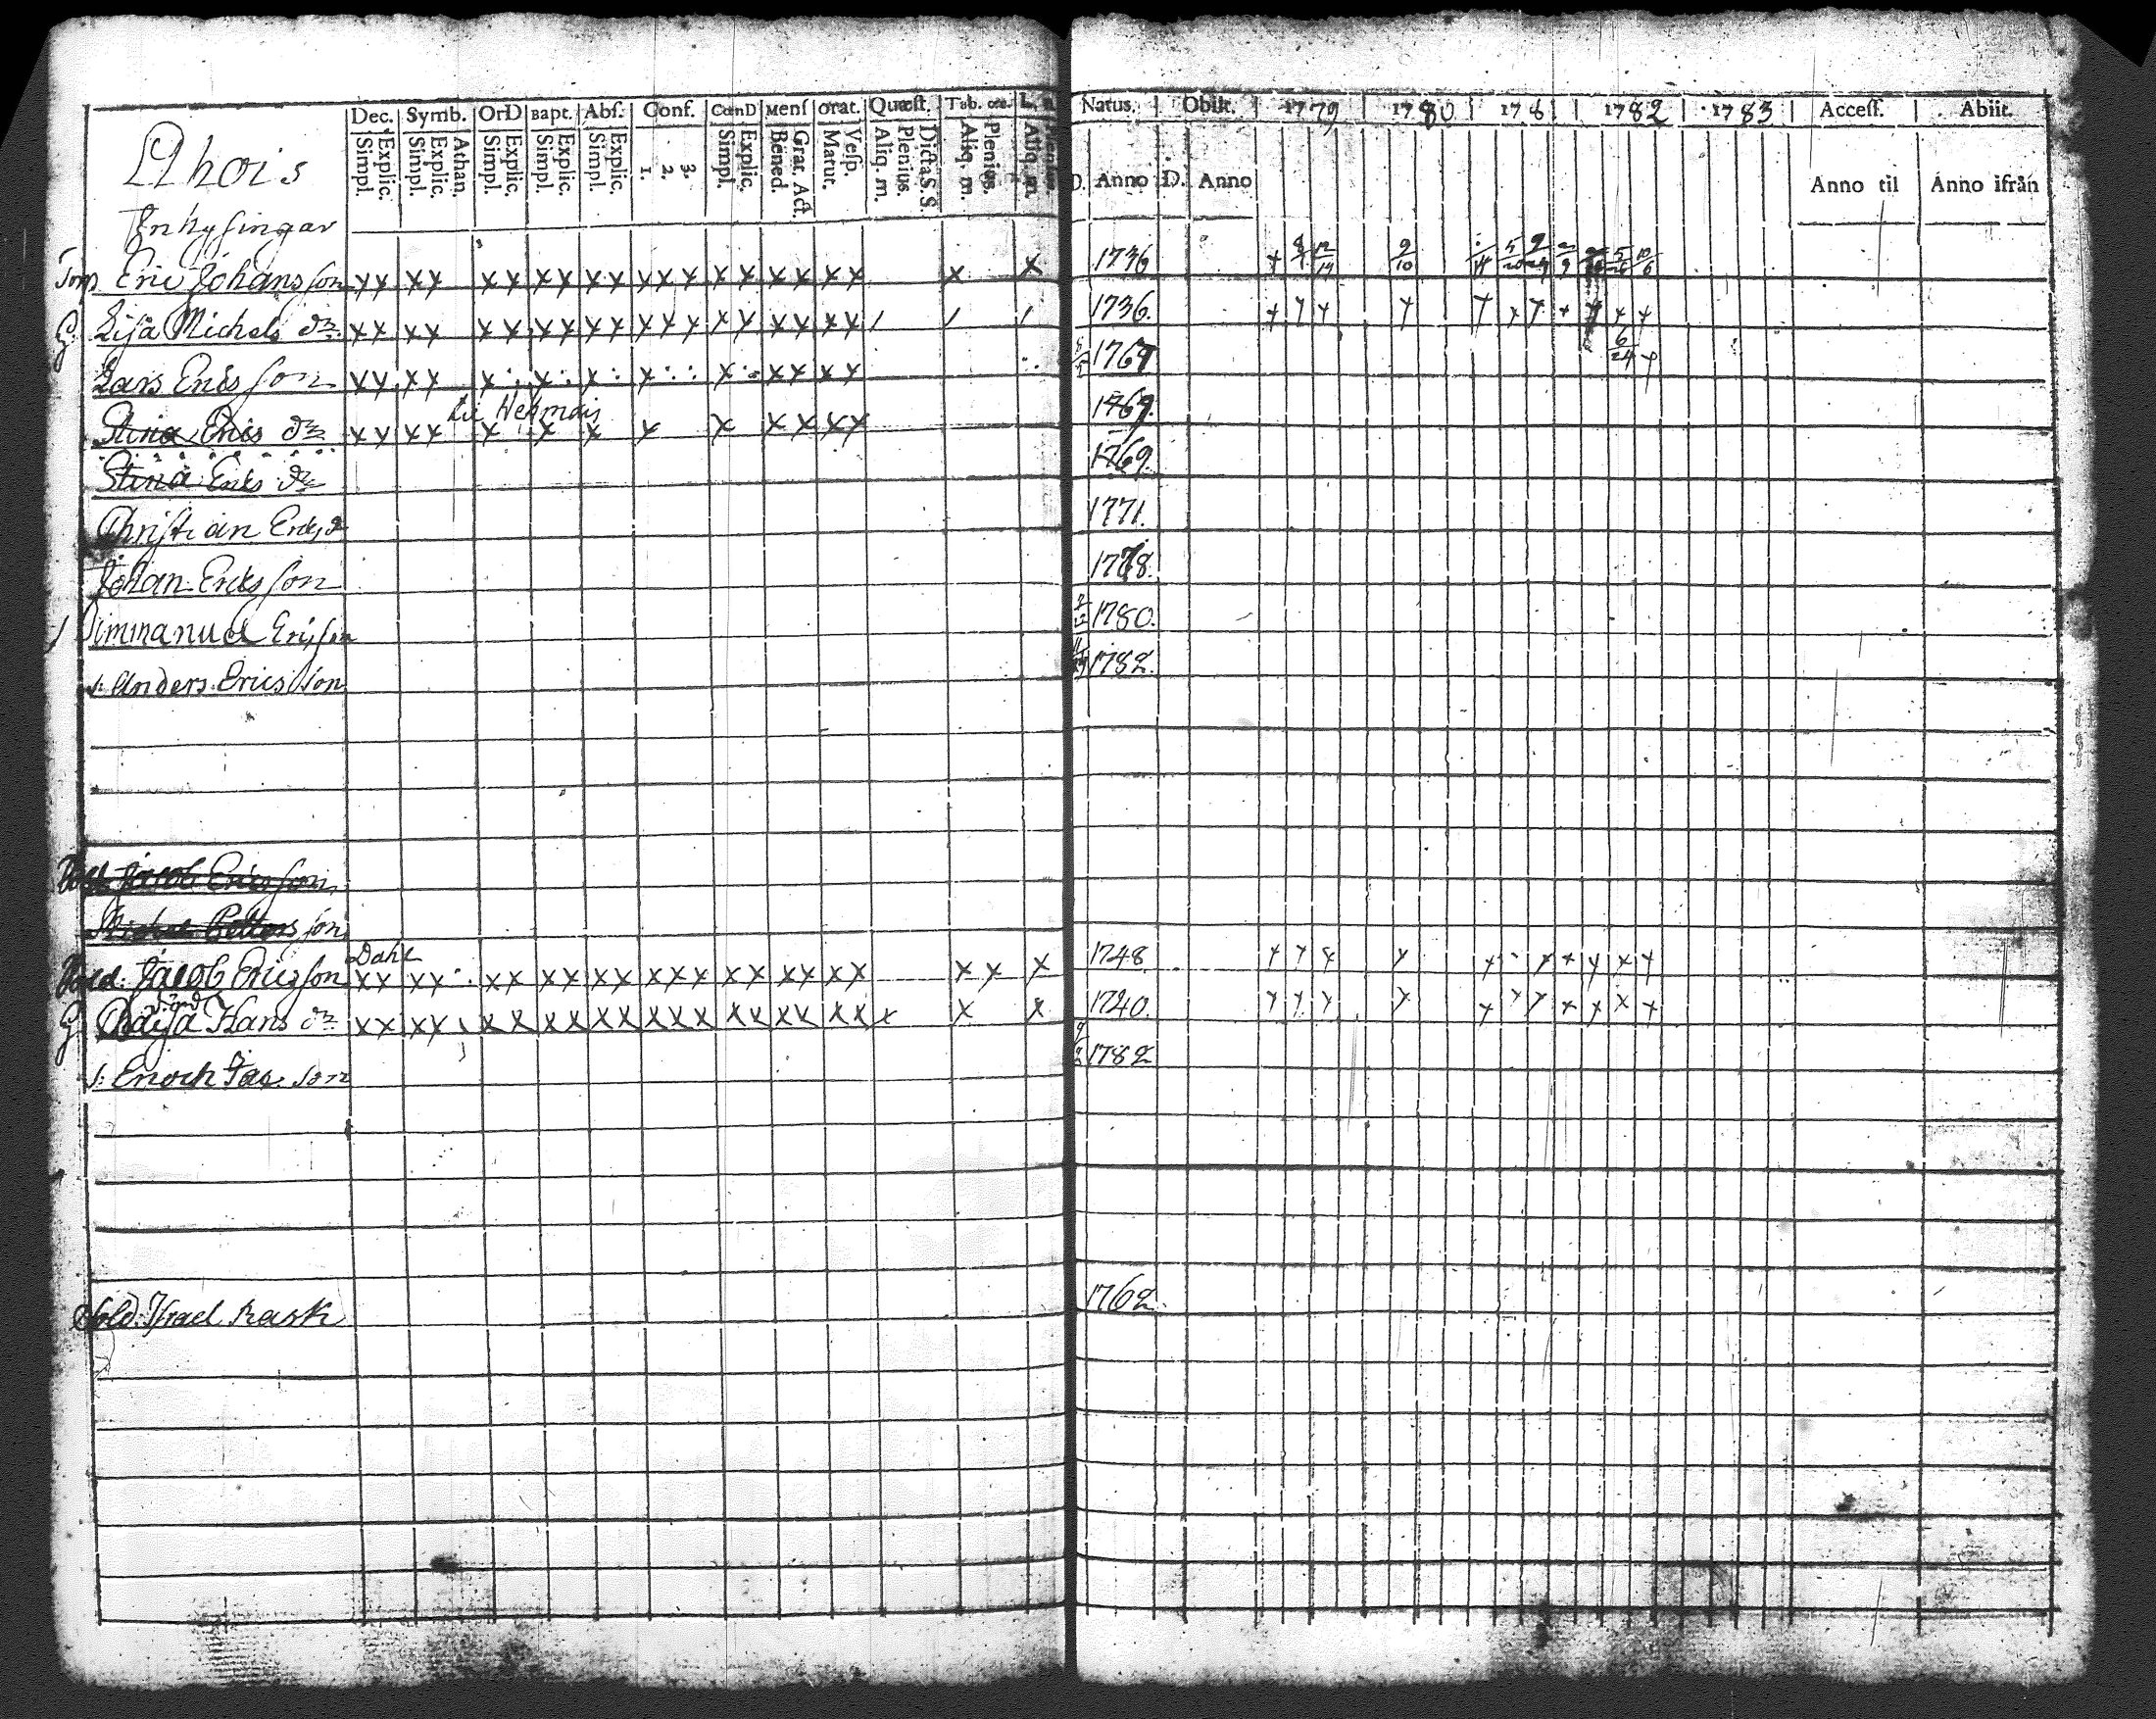 Dec. Symb. OrD Bapt. Abſ. Conf. CœnD Menſ Orat. Quæſt. Tab. œc. Natus. Obiit. 1779 1780 1781 1782 1783 Acceſſ. Abiit.
Simpl. Explic. Simpl. Explic. Athan. Simpl. Explic. Simpl. Explic. Simpl. Explic. 1. 2. 3. Simpl. Explic. Bened. Grat. Act. Matut. Veſp. Aliq. m. Plenius. Dicta S. S. Aliq. m. Plenius. Aliq. m. D. Anno D. Anno Anno til Anno ifrån
Inhysingar
Eric Johansson x x x x x x x x x x x x x x x x x x x x 1736 x 9/10
G. Lisa Michels dr x x x x x x x x x x x x x x x x x x / / / 1736.
Lars Ericsson x x x x x x x x x x x x x 1767 6/24
Stina Erics dr x x x x x x x x x x x x x 1769.
Stina Erics dr 1769.
Christian Erics 1771.
Johan Ericsson 1778.
Immanuel Ericsson 1780.
s: Anders Ericsson 1782.
Jacob Ericsson
Pettersson
Dahl
Jacob Ericsson x x x x x x x x x x x x x x x x x x x x x 1748
G Caisa Hans dr x x x x x x x x x x x x x x x x x x x x x 1740.
s: Enoch Jac. son 1782
Sold: Israel Rask 1762